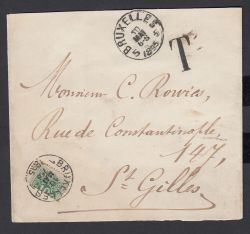 BRUXELLES 5
10
MAI
6-8
1895
T
Monsieur C. Rowies,
Rue de Constantinople
147,
St Gilles
BRUXELLES